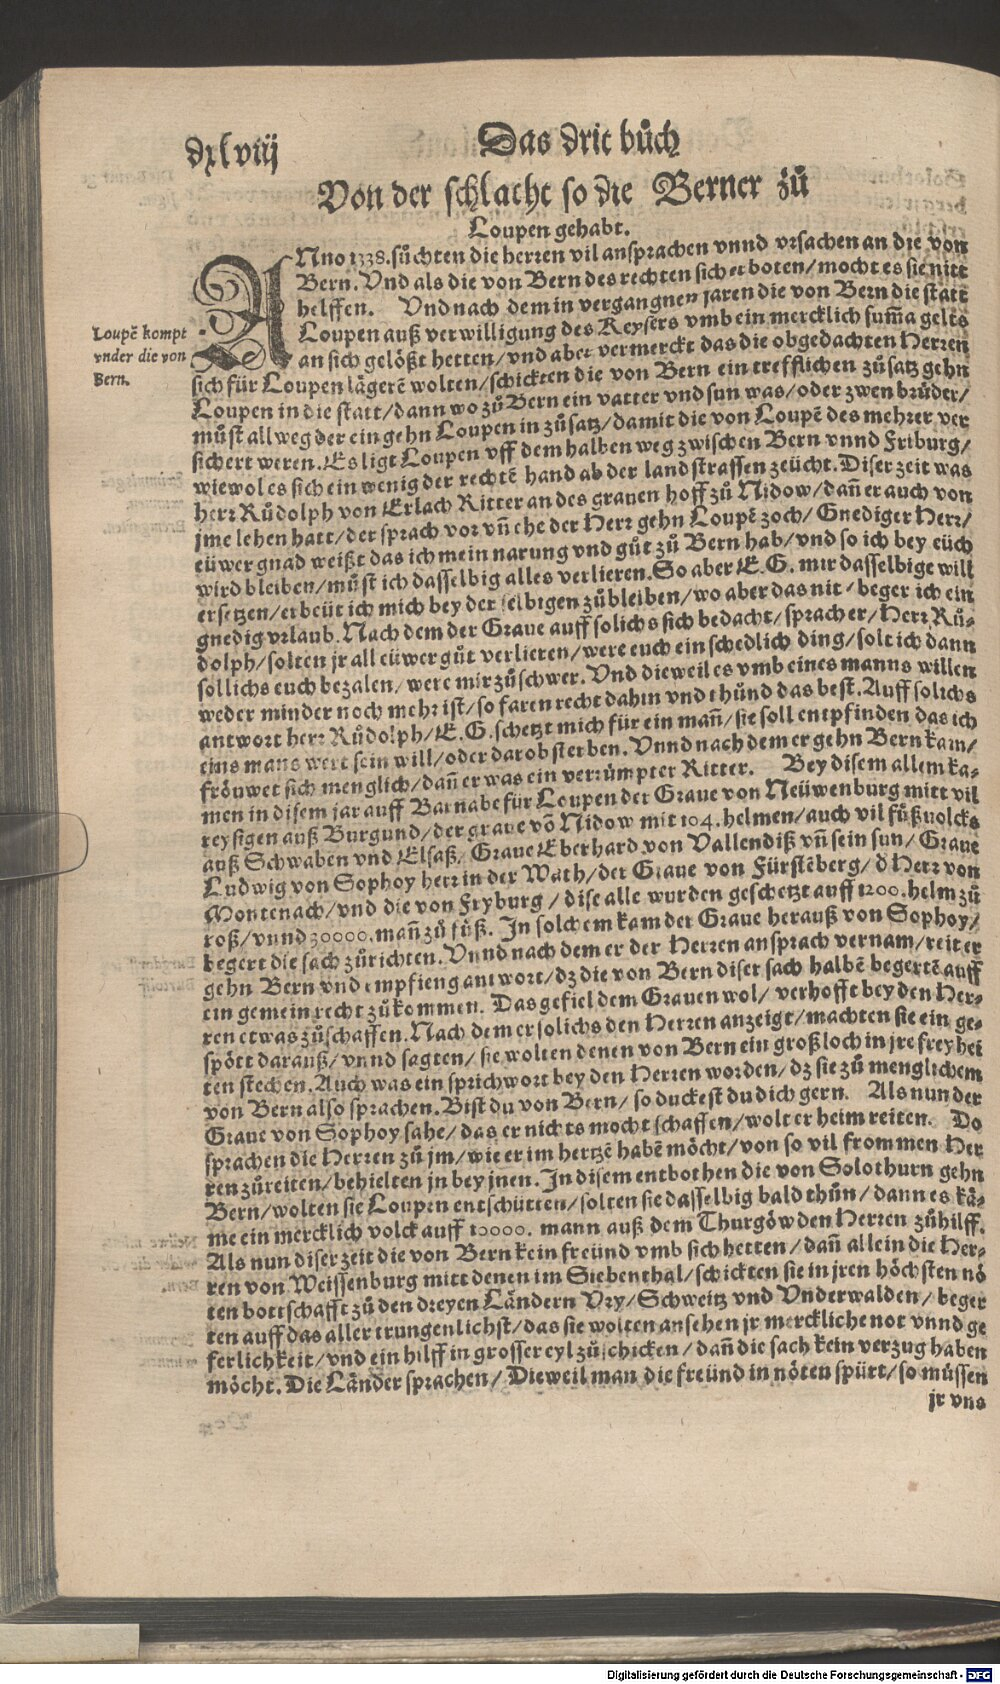 dxlviij
Das drit bůch
Von der schlacht so die Berner zů
Loupen gehabt.
ANno 1338. sůchten die herren vil ansprachen vnnd vrsachen an die von
Bern. Vnd als die von Bern des rechten sich erboten / mocht es sie nitt
helffen. Vnd nach dem in vergangnen jaren die von Bern die statt
Loupen auß verwilligung des Keysers vmb ein mercklich sum̃a gelts
an sich gelößt hetten / vnd aber vermerckt das die obgedachten Herren
Loupẽ kompt
vnder die von
Bern.
sich für Loupen lägerẽ wolten / schickten die von Bern ein trefflichen zůsatz gehn
Loupen in die statt / dann wo zů Bern ein vatter vnd sun was / oder zwen brůder /
můst allweg der ein gehn Loupen in zůsatz / damit die von Loupẽ des mehrer ver
sichert weren. Es ligt Loupen vff dem halben weg zwischen Bern vnnd Friburg /
wiewol es sich ein wenig der rechtẽ hand ab der landstrassen zeücht. Diser zeit was
herr Růdolph von Erlach Ritter an des grauen hoff zů Nidow / dañ er auch von
jme lehen hatt / der sprach vor vñ ehe der Herr gehn Loupẽ zoch / Gnediger Herr /
eüwer gnad weißt das ich mein narung vnd gůt zů Bern hab / vnd so ich bey eüch
wird bleiben / můst ich dasselbig alles verlieren. So aber E. G. mir dasselbige will
ersetzen / erbeüt ich mich bey der selbigen zůbleiben / wo aber das nit / beger ich ein
gnedig vrlaub. Nach dem der Graue auff solichs sich bedacht / sprach er / Herr Rů-
dolph / solten jr all eüwer gůt verlieren / were euch ein schedlich ding / solt ich dann
sollichs euch bezalen / were mir zů schwer. Vnd dieweil es vmb eines manns willen
weder minder noch mehr ist / so faren recht dahin vnd thůnd das best. Auff solichs
antwort herr Růdolph / E. G. schetzt mich für ein mañ / sie soll entpfinden das ich
eins mans wert sein will / oder darob sterben. Vnnd nach dem er gehn Bern kam /
fröuwet sich menglich / dañ er was ein verrümpter Ritter. Bey disem allem ka-
men in disem jar auff Barnabe für Loupen der Graue von Neüwenburg mitt vil
reysigen auß Burgund / der graue võ Nidow mit 104. helmen / auch vil fůßuolcks
auß Schwaben vnd Elsaß / Graue Eberhard von Vallendiß vñ sein sun / Graue
Ludwig von Sophoy herr in der Wath / der Graue von Fürstẽberg / d Herr von
Montenach / vnd die von Fryburg / dise alle wurden geschetzt auff 1200. helm zů
roß / vnnd 30000. mañ zů fůß. In solchem kam der Graue herauß von Sophoy /
begert die sach zůrichten. Vnnd nach dem er der Herren ansprach vernam / reit er
gehn Bern vnd empfieng antwort / dz die von Bern diser sach halbẽ begertẽ auff
ein gemein recht zůkommen. Das gefiel dem Grauen wol / verhofft bey den Her-
ren etwas zůschaffen. Nach dem er solichs den Herren anzeigt / machten sie ein ge-
spött darauß / vnnd sagten / sie wolten denen von Bern ein groß loch in jre freyhei
ten stechen. Auch was ein sprichwort bey den Herren worden / dz sie zů menglichem
von Bern also sprachen. Bist du von Bern / so duckest du dich gern. Als nun der
Graue von Sophoy sahe / das er nichts mocht schaffen / wolt er heim reiten. Do
sprachen die Herren zů jm / wie er im hertzẽ habẽ möcht / von so vil frommen Her
ren zůreiten / behielten jn bey jnen. In disem entbothen die von Solothurn gehn
Bern / wolten sie Loupen entschütten / solten sie dasselbig bald thůn / dann es kä-
me ein mercklich volck auff 10000. mann auß dem Thurgöw den Herren zůhilff.
Als nun diser zeit die von Bern kein freünd vmb sich hetten / dañ allein die Her-
ren von Weissenburg mitt denen im Siebenthal / schickten sie in jren höchsten nö
ten bottschafft zů den dreyen Ländern Vry / Schweitz vnd Vnderwalden / beger
ten auff das aller trungenlichst / das sie wolten ansehen jr merckliche not vnnd ge
ferlichkeit / vnd ein hilff in grosser eyl zůschicken / dañ die sach kein verzug haben
möcht. Die Länder sprachen / Dieweil man die freünd in nöten spürt / so müssen
jr vns
Digitalisierung gefördert durch die Deutsche Forschungsgemeinschaft - DFG